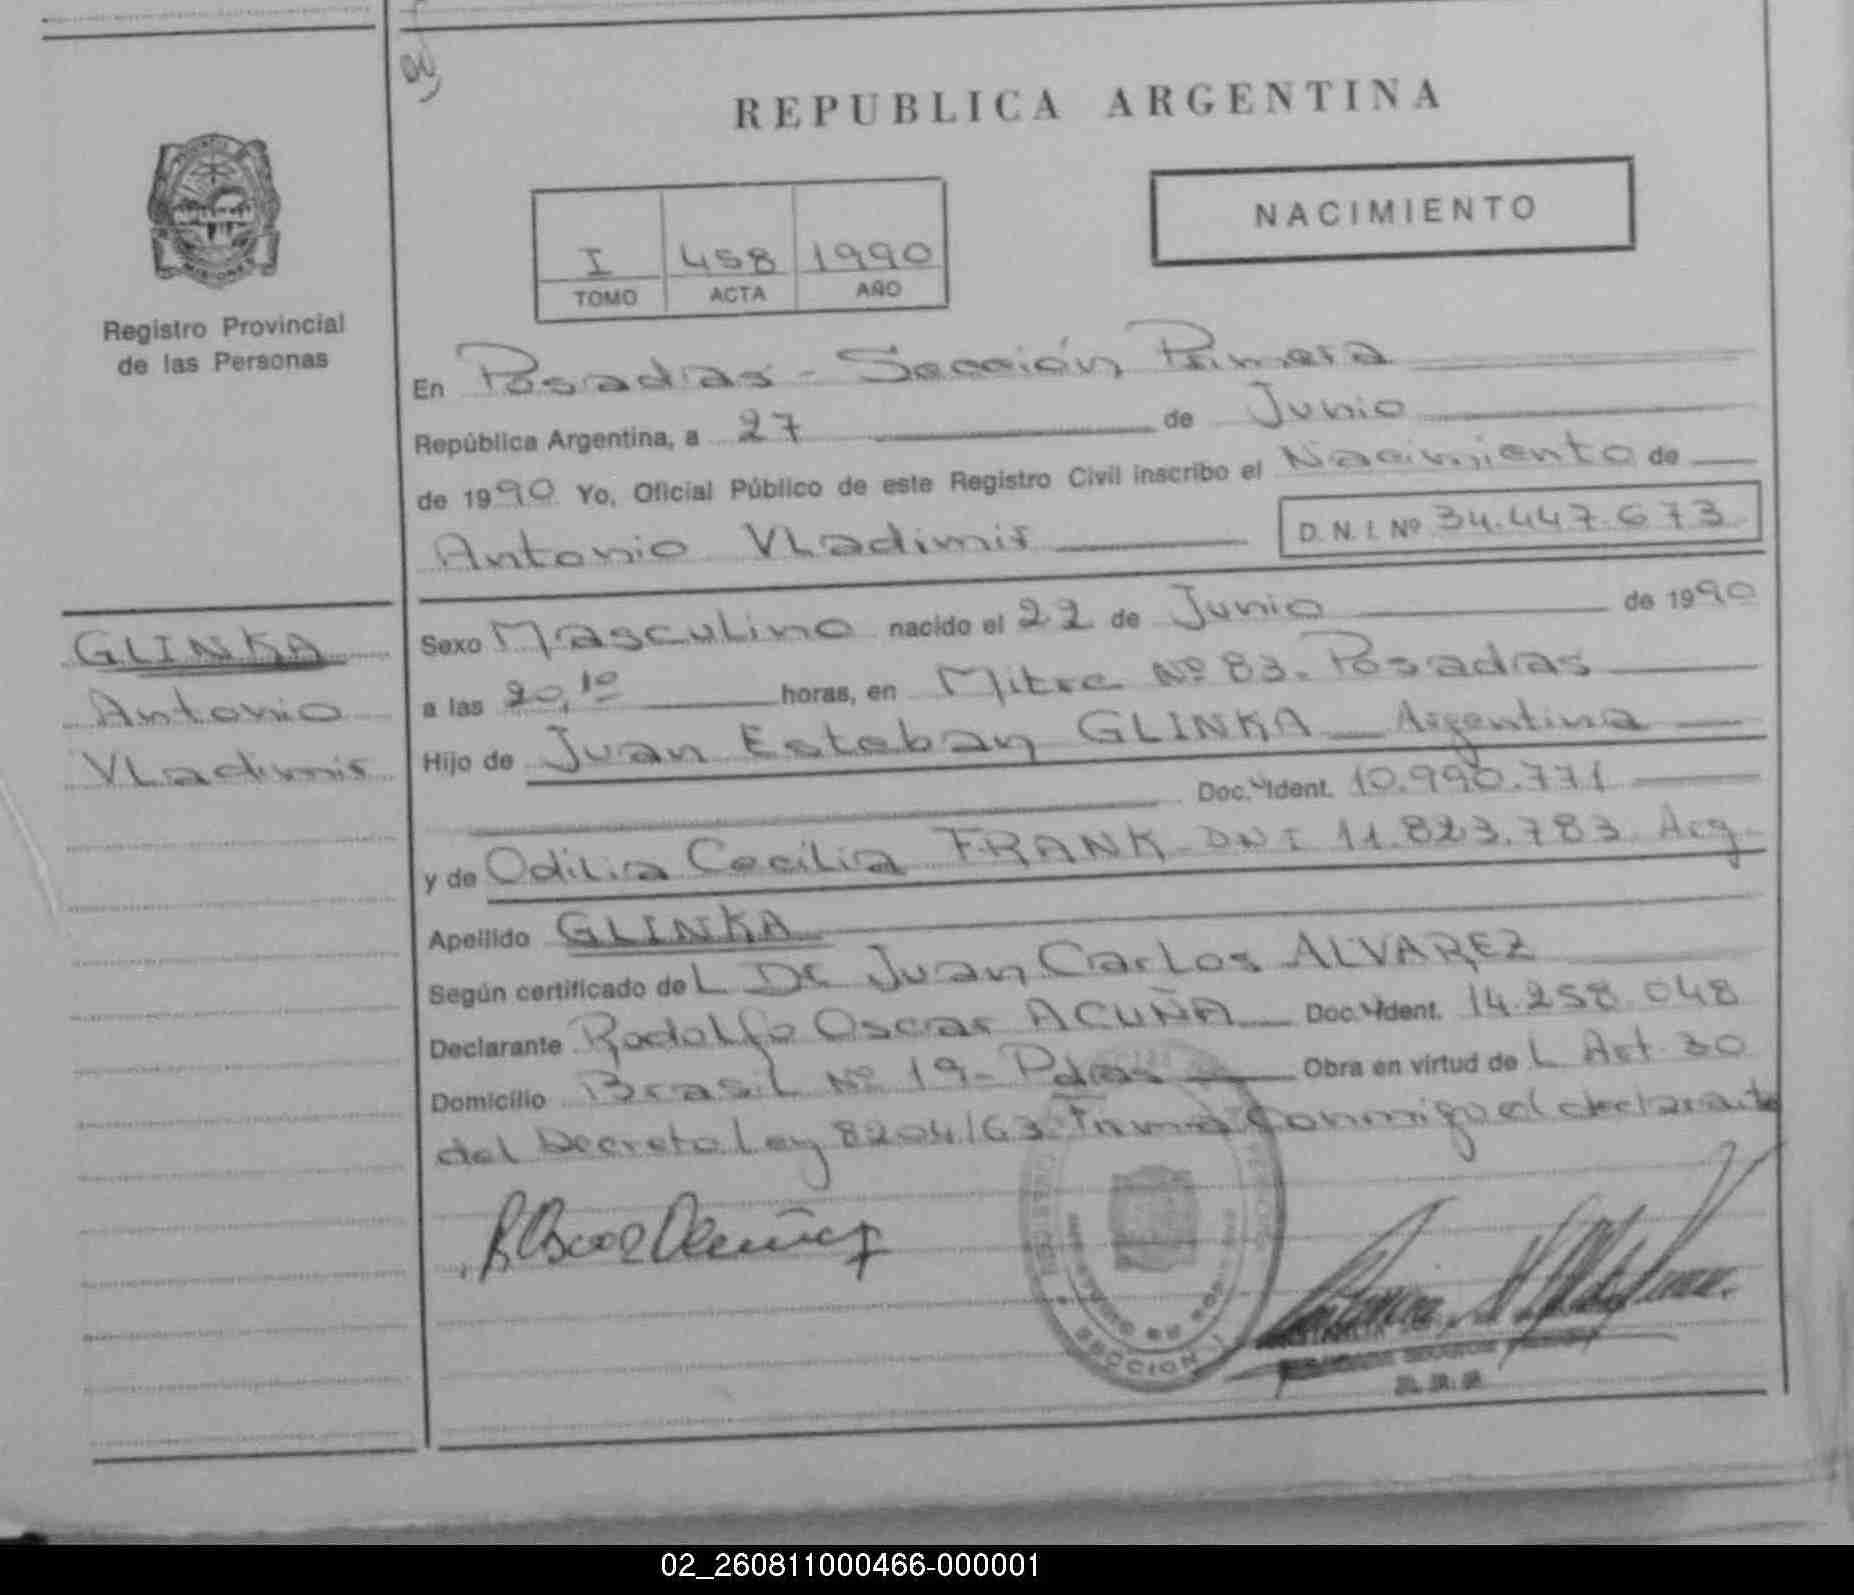 REPUBLICA ARGENTINA
NACIMIENTO
I 458 1990
TOMO ACTA AÑO
MISIONES
Registro Provincial
de las Personas
En Posadas - Sección Primera
República Argentina, a 27 de Junio
de 1990 Yo, Oficial Público de este Registro Civil inscribo el Nacimiento de
Antonio Vladimir D.N.I. Nº 34.447.673
GLINKA
Antonio
Vladimir
Sexo Masculino nacido el 22 de Junio de 1990
a las 20,10 horas, en Mitre Nº 83. Posadas
Hijo de Juan Esteban GLINKA Argentina
Doc. Ident. 10.990.771
y de Odilia Cecilia FRANK DNI 11.823.783 Arg.
Apellido GLINKA
Según certificado del Dr Juan Carlos ALVAREZ
Declarante Rodolfo Oscar ACUÑA Doc. Ident. 14.258.048
Domicilio Brasil Nº 19- Pdas Obra en virtud del Art. 30
del Decreto Ley 8204/63. Firma conmigo el declarante
SECCION 1
02_260811000466-000001